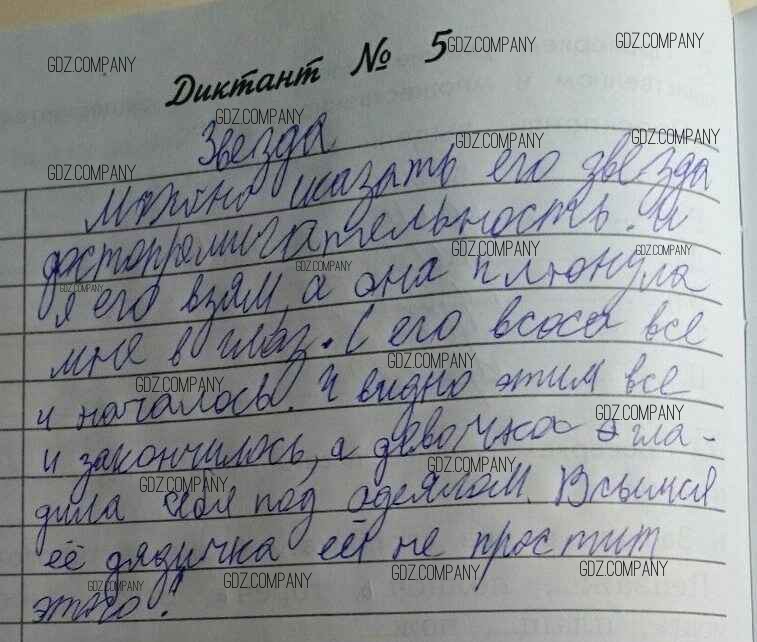 GDZ.COMPANY GDZ.COMPANY GDZ.COMPANY
Диктант № 5
GDZ.COMPANY GDZ.COMPANY GDZ.COMPANY
Звезда
GDZ.COMPANY
Можно сказать его звезда
достопромичательность. И
GDZ.COMPANY GDZ.COMPANY GDZ.COMPANY GDZ.COMPANY
я его взям, а она плюнула
мне в глаз. С его всоса все
GDZ.COMPANY GDZ.COMPANY
и началось. И видно этим все
GDZ.COMPANY
и закончилось, а девочка гла-
GDZ.COMPANY GDZ.COMPANY
дила себя под одеялом.
её дядичка ей не простит
GDZ.COMPANY GDZ.COMPANY GDZ.COMPANY GDZ.COMPANY
этого!